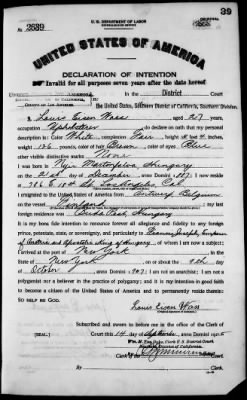 39
U. S. DEPARTMENT OF LABOR
No. 2539
UNITED STATES OF AMERICA
DECLARATION OF INTENTION
Invalid for all purposes seven years after the date hereof
District Court
The United States, Southern District of California, Southern Division.
County of Los Angeles
I, Louis Eisen Wass, aged 27 years,
occupation Upholsterer, do declare on oath that my personal
description is: Color White, complexion Fair, height 5 feet 4 inches,
weight 136 pounds, color of hair Brown, color of eyes Blue
other visible distinctive marks None
I was born in Hungary
on the 21st day of, anno Domini 1887; I now reside
at 786 E 18th St., Los Angeles, Cal.
I emigrated to the United States of America from Antwerp Belgium
on the vessel; my last
foreign residence was Hungary
It is my bona fide intention to renounce forever all allegiance and fidelity to any foreign
prince, potentate, state, or sovereignty, and particularly to Francis Joseph, Emperor
of Austria and Apostolic King of Hungary, of whom I am now a subject; I
arrived at the port of New York, in the
State of New York, on or about the 9th day
of October, anno Domini 1907; I am not an anarchist; I am not a
polygamist nor a believer in the practice of polygamy; and it is my intention in good faith
to become a citizen of the United States of America and to permanently reside therein:
SO HELP ME GOD.
Louis Eisen Wass
Subscribed and sworn to before me in the office of the Clerk of
[SEAL.] said Court this 14 day of September, anno Domini 1915
Clerk U. S. District Court,
Southern District of California.
By
Clerk.